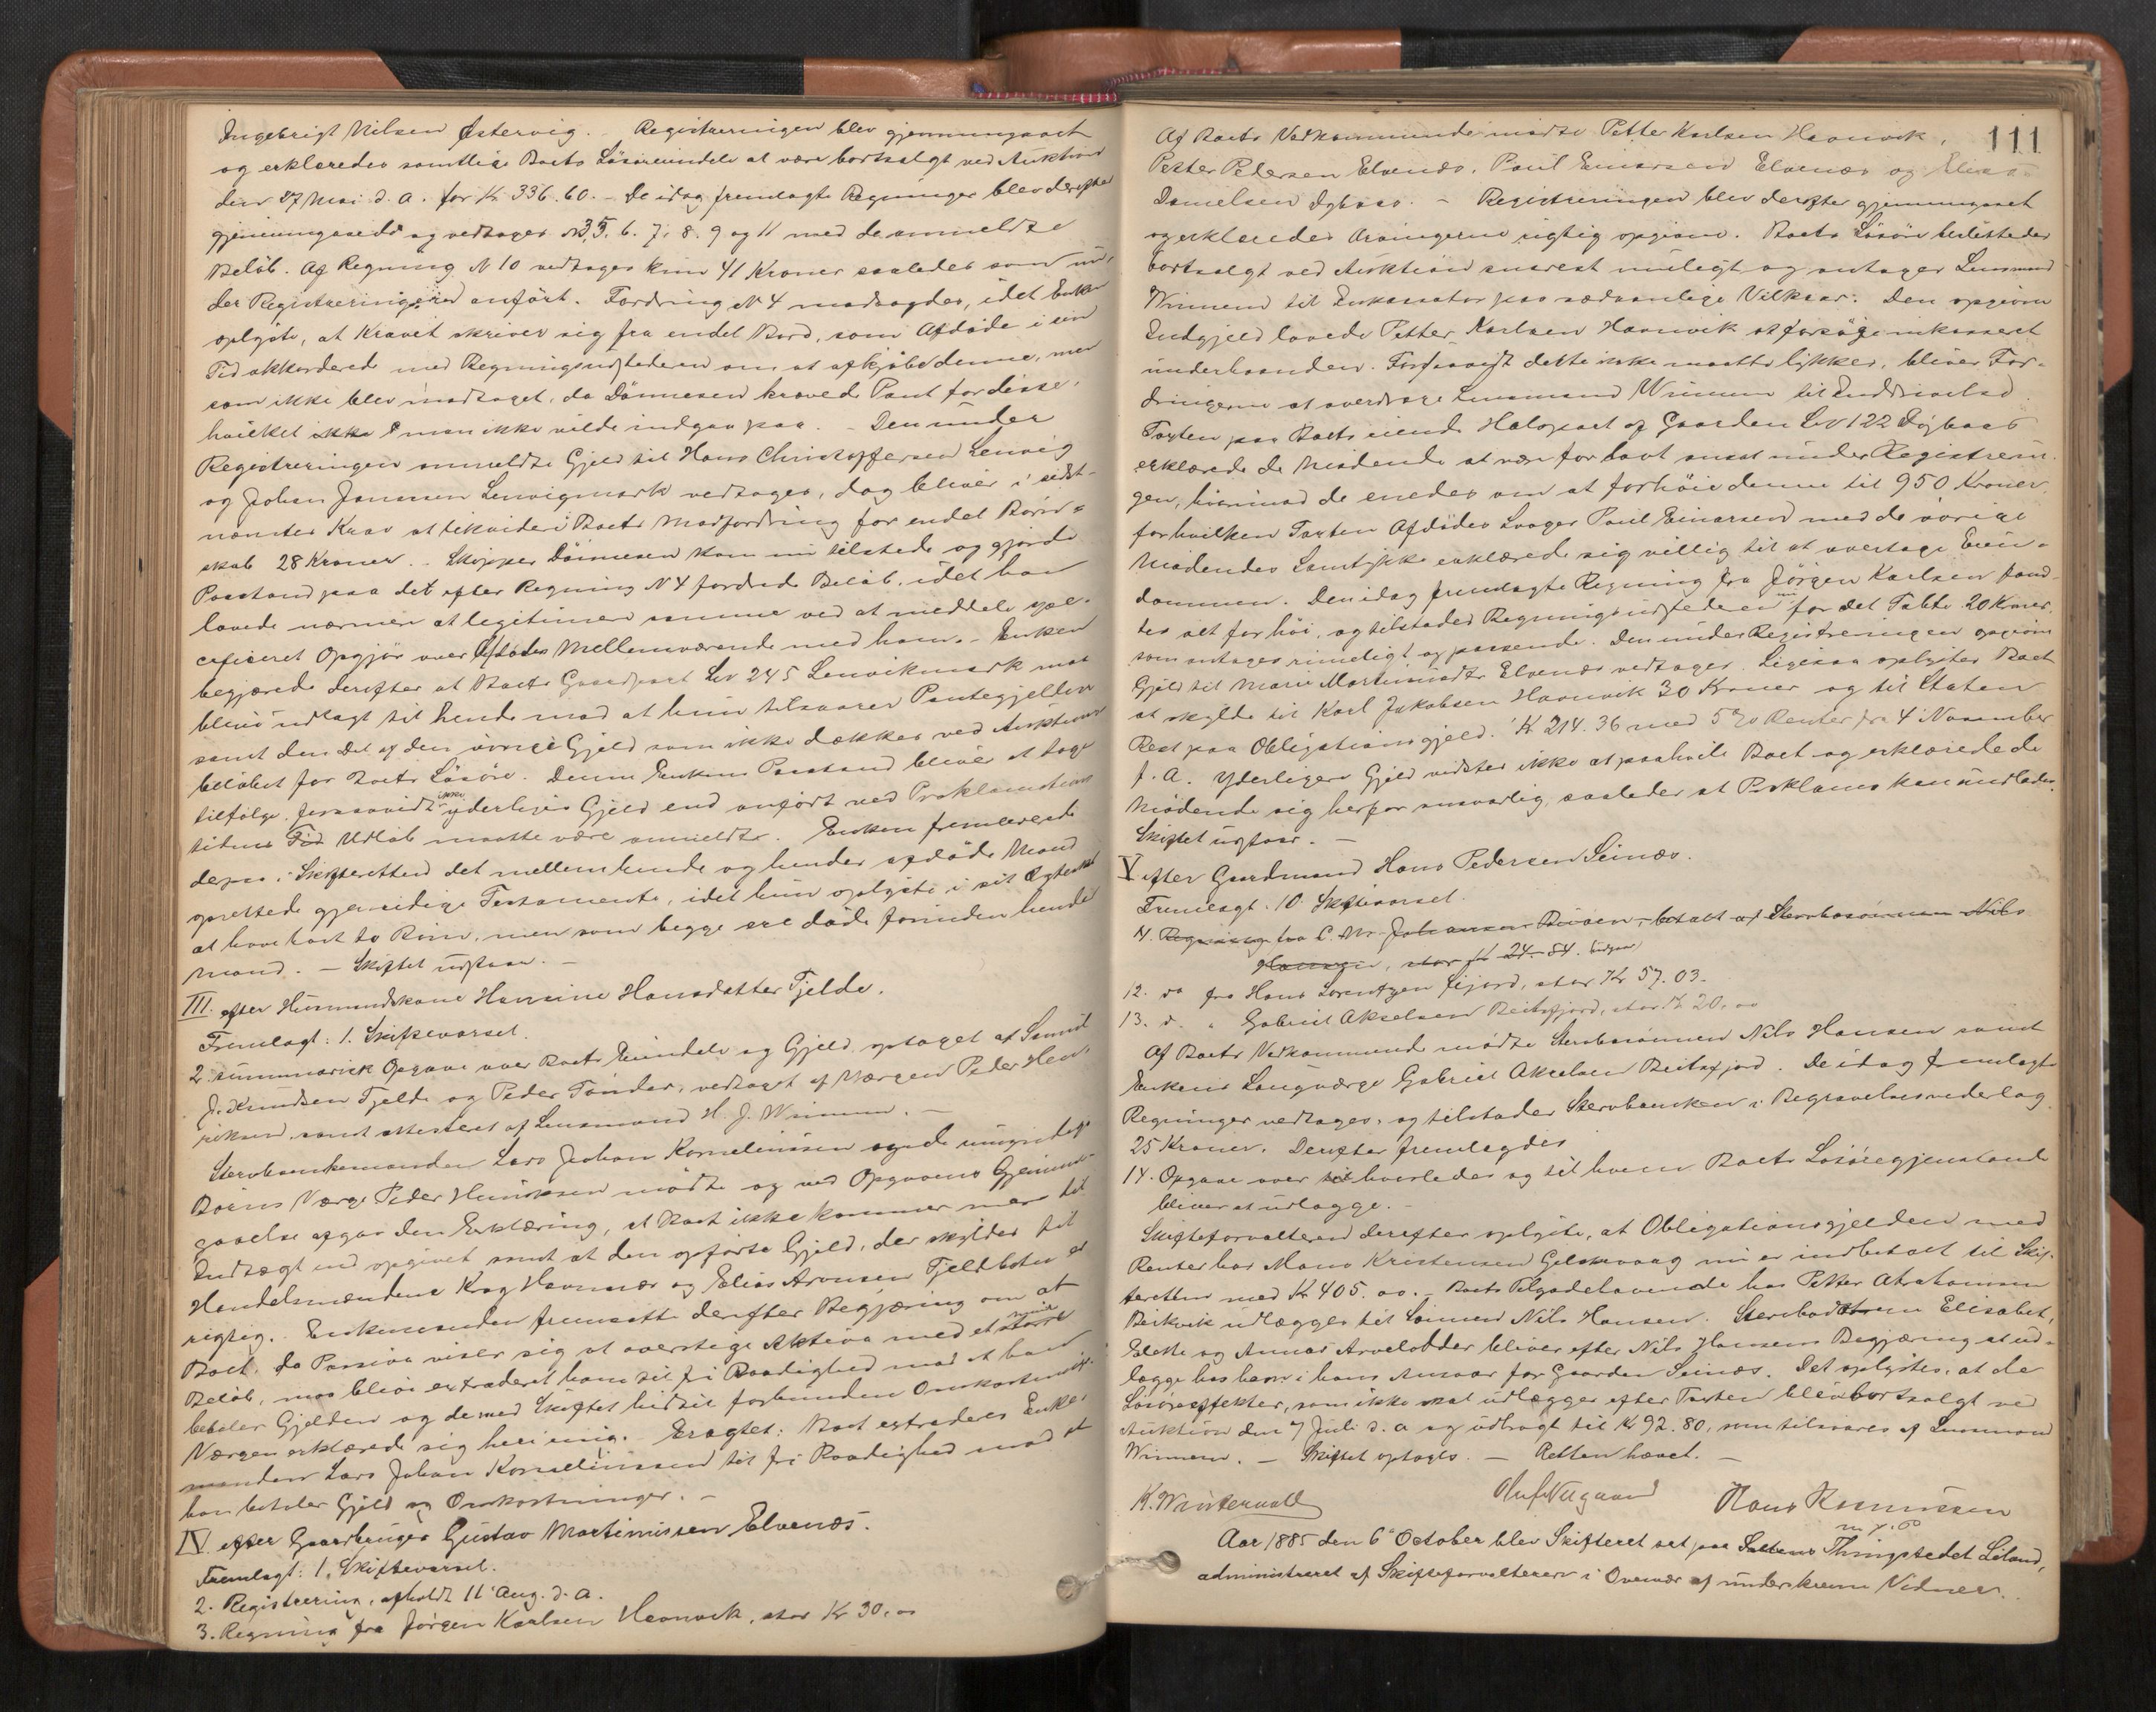 Ingebrigt Nilsen Østervig. Registreringen blev gjennemgaaet
og erklæredes samtlige Boets Løsøreeiendele at være bortsolgt ved Auktion
den 27 Mai d. A. for Kr 336.60. – De idag fremlagte Regninger blev derefter
gjennemgaaede og vedtages N 3, 5, 6. 7. 8. 9 og 11 med de anmeldte
Beløb. Af Regning N 10 vedtages kun 41 Kroner saaledes som un-
der Registreringen anført. Fordring N 4 modsagdes, idet Enken
oplyste, at Kravet skriver sig fra endel Bord, som Afdøde i sin
Tid akkorderede med Regningsudstederen om at afkjøbe denne, men
som ikke blev modtaget, da Dønnesen krævede Pant for disse,
hvilket man ikke vilde indgaa paa. – Den under
Registreringen anmeldte Gjeld til Hans Christoffersen Lenvig
og Johan Jensen Lenvigmark vedtages, dog bliver i sidst-
nævntes Krav at likvidere Boets Modfordring for endel Bord-
skab 28 Kroner. – Skipper Dønnesen kom nu tilstede og gjorde
Paastand paa det efter Regning N 4 fordrede Beløb, idet han
lovede nærmere at legitimere samme ved at meddele spe-
cificeret Opgjør over Afdødes Mellemværende med ham. – Enken
begjærede derefter at Boets Gaardpart Lnr 245 Lenvikmark maa
blive udlagt til hende mod at hun tilsvarer Pantegjelden
samt den Del af den øvrige Gjeld som ikke dækkes ved Auktions
beløbet for Boets Løsøre. Denne Enkens Paastand bliver at tage
tilfølge, forsaavidt ikke yderligere Gjeld end anført ved Proklamations
tidens Udløb maatte være anmeldt. Enken fremleverede
depos. i Skifteretten det mellem hende og hendes afdøde Mand
oprettede gjensidige Testamente, idet hun oplyste i sit Ægteskab
at have havt to Børn, men som begge ere døde forinden hendes
Mand. – Skiftet udstaar. –
III. efter Husmandskone Hansine Hansdatter Fjelde.
Fremlagt: 1. Skiftevarsel.
2. summarisk Opgave over Boets Eiendele og Gjeld optaget af
J. Knudsen Fjelde og Peder Tønder, vedtaget af Værgen Peder Hen-
riksen samt attesteret af Lensmand H. J. Winnem. –
Stervboenkemanden Lars Johan Kornelinssen og de umyndige
Børns Værge Peder Henriksen mødte og ved Opgavens Gjennem-
gaaelse afgav den Erklæring, at Boet ikke kommer mer til
Indtægt end opgivet samt at den opførte Gjeld, der skyldes til
Handelsmændene Krog Havnnær og Elias Aronsen Fjeldboten er
rigtig. Enkemanden fremsatte derefter Begjæring om at
Boet, da Passiva viser sig at overstige Aktiva med et større
Beløb, maa blive extraderet ham til fri Raadighed mod at han
betaler Gjelden og de med Skiftet hidtil forbundne Omkostninger.
Værgen erklærede sig heri enig. Eragtet: Boet extraderes Enke-
manden Lars Johan Kornelinssen til fri Raadighed mod at
han betaler Gjeld og Omkostninger. –
IV. efter Gaardbruger Gustav Martinussen Elvenæs.
Fremlagt: 1. Skiftevarsel.
2. Registrering, afholdt 11 Aug. d. A.
3. Regning fra Jørgen Karlsen Havnvik, stor Kr 30,00
111
Af Boets Vedkommende mødte Petter Karlsen Havnvik,
Petter Pedersen Elvenæs, Paul Einarsen Elvenæs og Elias
Danielsen. – Registreringen blev derefter gjennemgaaet
og erklæredes Arvingerne rigtig opgivne. Boets Løsøre besluttedes
bortsolgt ved Auktion snarest muligt og antages Lensmand
Winnem til Inkassator paa sædvanlige Vilkaar. Den opgivne
Indgjeld lovede Petter Karlsen Havnvik at forsøge inkasseret
underhaanden. Forsaavidt dette ikke maatte lykkes, bliver For-
dringerne at overdrage Lensmand Winnem til Inddrivelse.
Taxten paa Boets eiende Halvpart af Gaarden Lnr 122
erklærede de Mødende at være for lavt ansat under Registrerin-
gen, hvorimod de enedes om at forhøie denne til 950 Kroner,
for hvilken Taxten Afdødes Svoger Paul Einarsen med de øvrige
Mødendes Samtykke erklærede sig villig til at overtage Eien-
dommen. Den idag fremlagte Regning fra Jørgen Karlsen fand-
tes alt for høi, og tilstodes Regningsudstederen for det Tabte 20 Kroner,
som antages rimeligt og passende. Den under Registreringen opgivne
Gjeld til Marie Martinusdtr Elvenæs vedtages. Ligesaa oplystes Boet
at skylde til Karl Jakobsen Havnvik 30 Kroner og til Staten
Rest paa Obligationsgjeld Kr 214.36 med 5% Renter fra 4 November
f. A. Yderligere Gjeld vidstes ikke at paahvile Boet og erklærede de
Mødende sig herfor ansvarlig, saaledes at Proklama kan undlades.
Skiftet udstaar. –
V. efter Gaardmand Hans Pedersen Seinæs.
Fremlagt. 10. Skiftevarsel.
11. Regning fra C. M. Johansen, betalt af Stervbosønnen Nils
Hansen, stor Kr 24.84. udgaar
12. do fra Hans Lorentzen, stor Kr 57.03.
13. d. " Gabriel Akselsen Beitsfjord, stor Kr 20.00
Af Boets Vedkommende mødte Stervbosønnen Nils Hansen samt
Enkens Laugværge Gabriel Akselsen Beitsfjord. De idag fremlagte
Regninger vedtages, og tilstodes Stervboenken i Begravelsesvederlag
25 Kroner. Derefter fremlagdes
14. Opgave over hvorledes og til hvem Boets Løsøregjenstande
bliver at udlægge. –
Skifteforvalteren derefter oplyste, at Obligationsgjelden med
Renter hos Mons Kristensen nu er indbetalt til Skif-
teretten med Kr 405.00. – Boets Tilgodehavende hos Petter Abrahamsen
udlægges til Sønnen Nils Hansen. Stervbodøtrene Elisabet,
og Annas Arvelodder bliver efter Nils Hansens Begjæring at ud-
lægge hos ham i hans Ansvar for Gaarden Seinæs. Det oplystes, at de
Løsøreeffekter, som ikke skal udlægges efter Taxten blev bortsolgt ved
Auktion den 7 Juli d. A og udbragt til Kr 92.80, som tilsvares af Lensmand
Winnem. – Skiftet optages. – Retten hævet. –
K. Wintervold
Hans Rasmussen
m. f. P
Aar 1885 den 6te October blev Skifteret sat paa Thingstedet Liland,
administreret af Skifteforvalteren i Overvær af underskrevne Vidner.